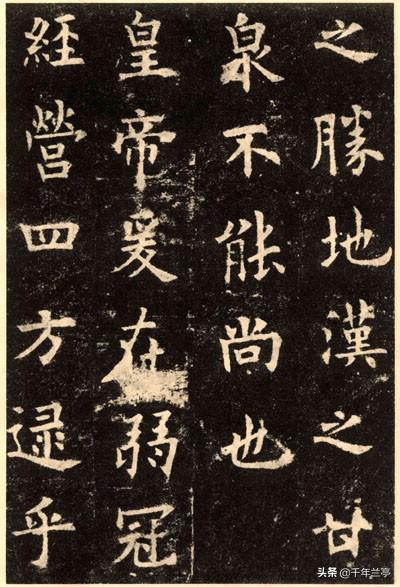 之勝地漢之甘
泉不能尚也
皇帝爰在弱冠
經營四方逯乎
头条 @千年兰亭